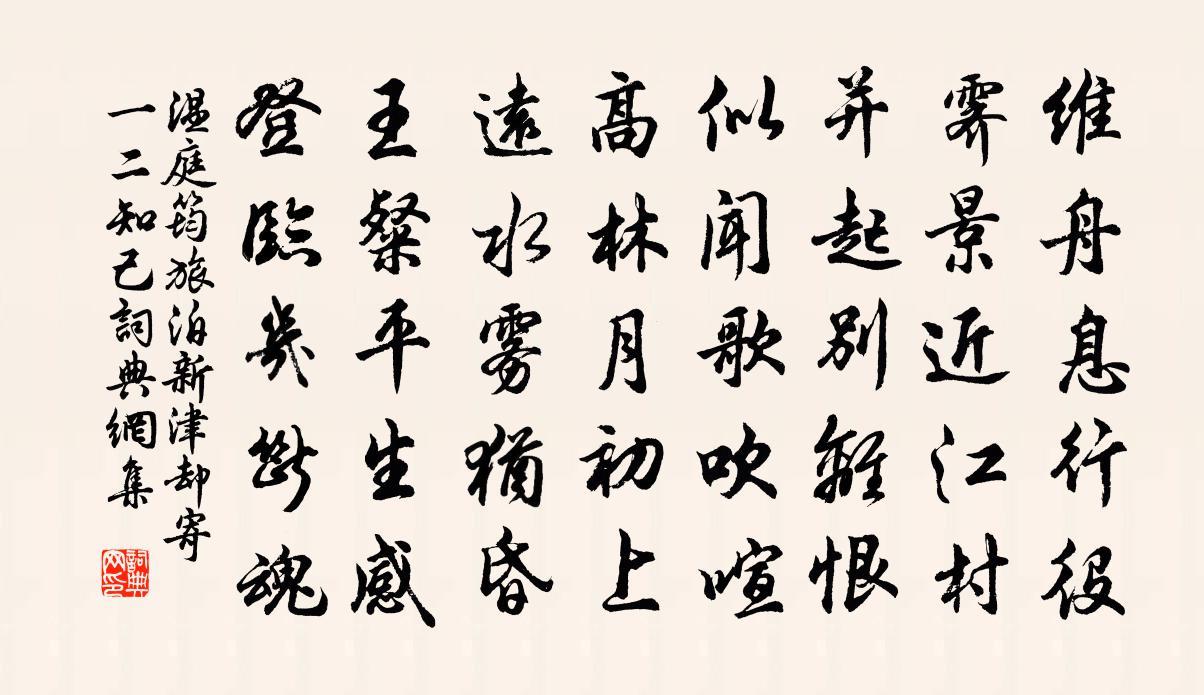 维舟息行役
霁景近江村
并起别離恨
似闻歌吹喧
高林月初上
遠水雾猶昏
王粲平生感
登臨幾斷魂
温庭筠旅泊新津却寄
一二知己詞典網集
詞典网印